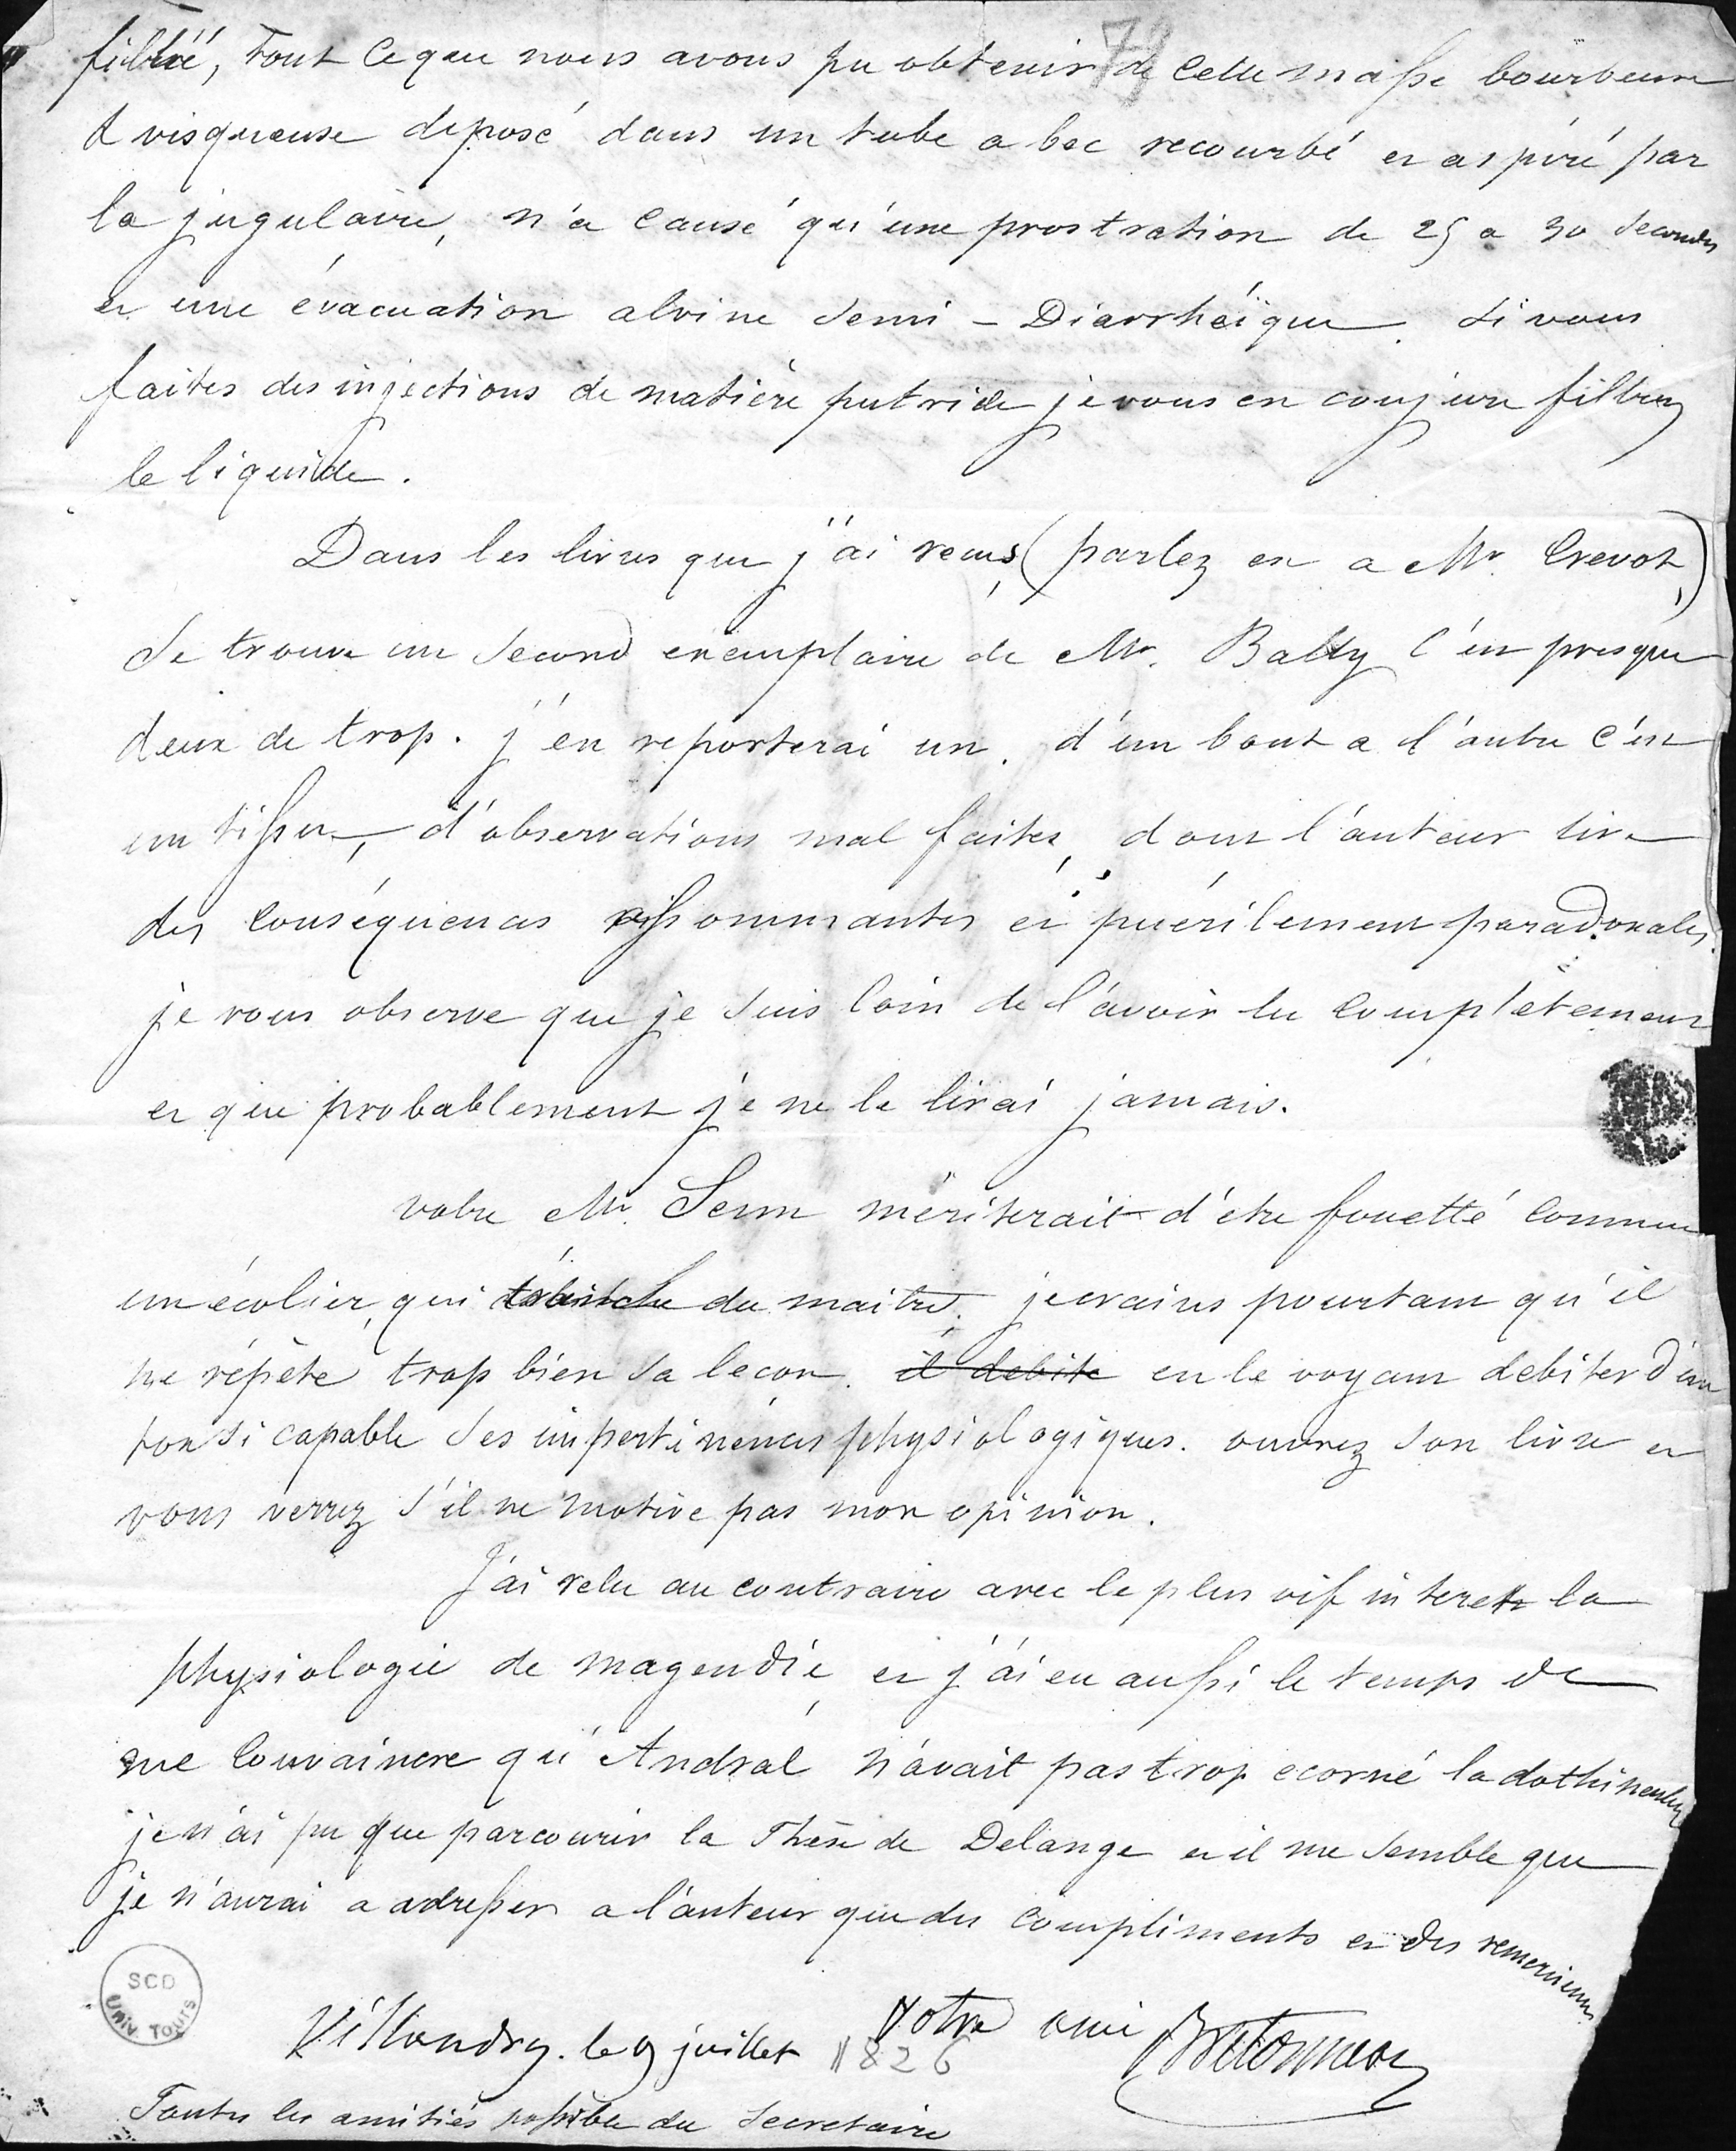 filtré, tout ce que nous avons pu obtenir de cette masse bourbeuse
& visqueuse deposé dans un tube a bec recourbé et aspiré par
la jugulaire, n'a causé qu'une prostration de 25 a 30 secondes
et une évacuation alvine semi - Diarrhéïque. si vous
faites des injections de matière putride je vous en conjure filtrez
le liquide.
Dans les livres que j'ai reçus (parlez en a Mr. Crevot,)
se trouve un second exemplaire de Mr. Bally c'est presque
deux de trop. j'en reporterai un. d'un bout a l'autre c'est
un tissu, d'observations mal faites, dont l'auteur tire
des conséquences assommantes et puérilement paradoxales.
je vous observe que je suis loin de l'avoir lu complètement
et que probablement je ne le lirai jamais.
votre Mr. Senn mériterait d'etre fouetté comme
un écolier, qui du maitre. je crains pourtant qu'il
ne répète trop bien sa lecon. il debite en le voyant debiter d'un
ton si capable ses impertinences physiologiques. ouvrez son livre et
vous verrez s'il ne motive pas mon opinion.
J'ai relu au contraire avec le plus vif interet la
physiologie de magendie, et j'ai eu aussi le temps de
me convaincre qu'Andral n'avait pas trop ecorné la dothinenterie
je n'ai pu que parcourir la Thèse de Delange et il me semble que
je n'aurai a adresser a l'auteur que des compliments et des remerciemens
Votre ami Bretonneau
Villandry. le 9 juillet 1826
Toutes les amitiés possibles du Secretaire
SCD
Univ. Tours